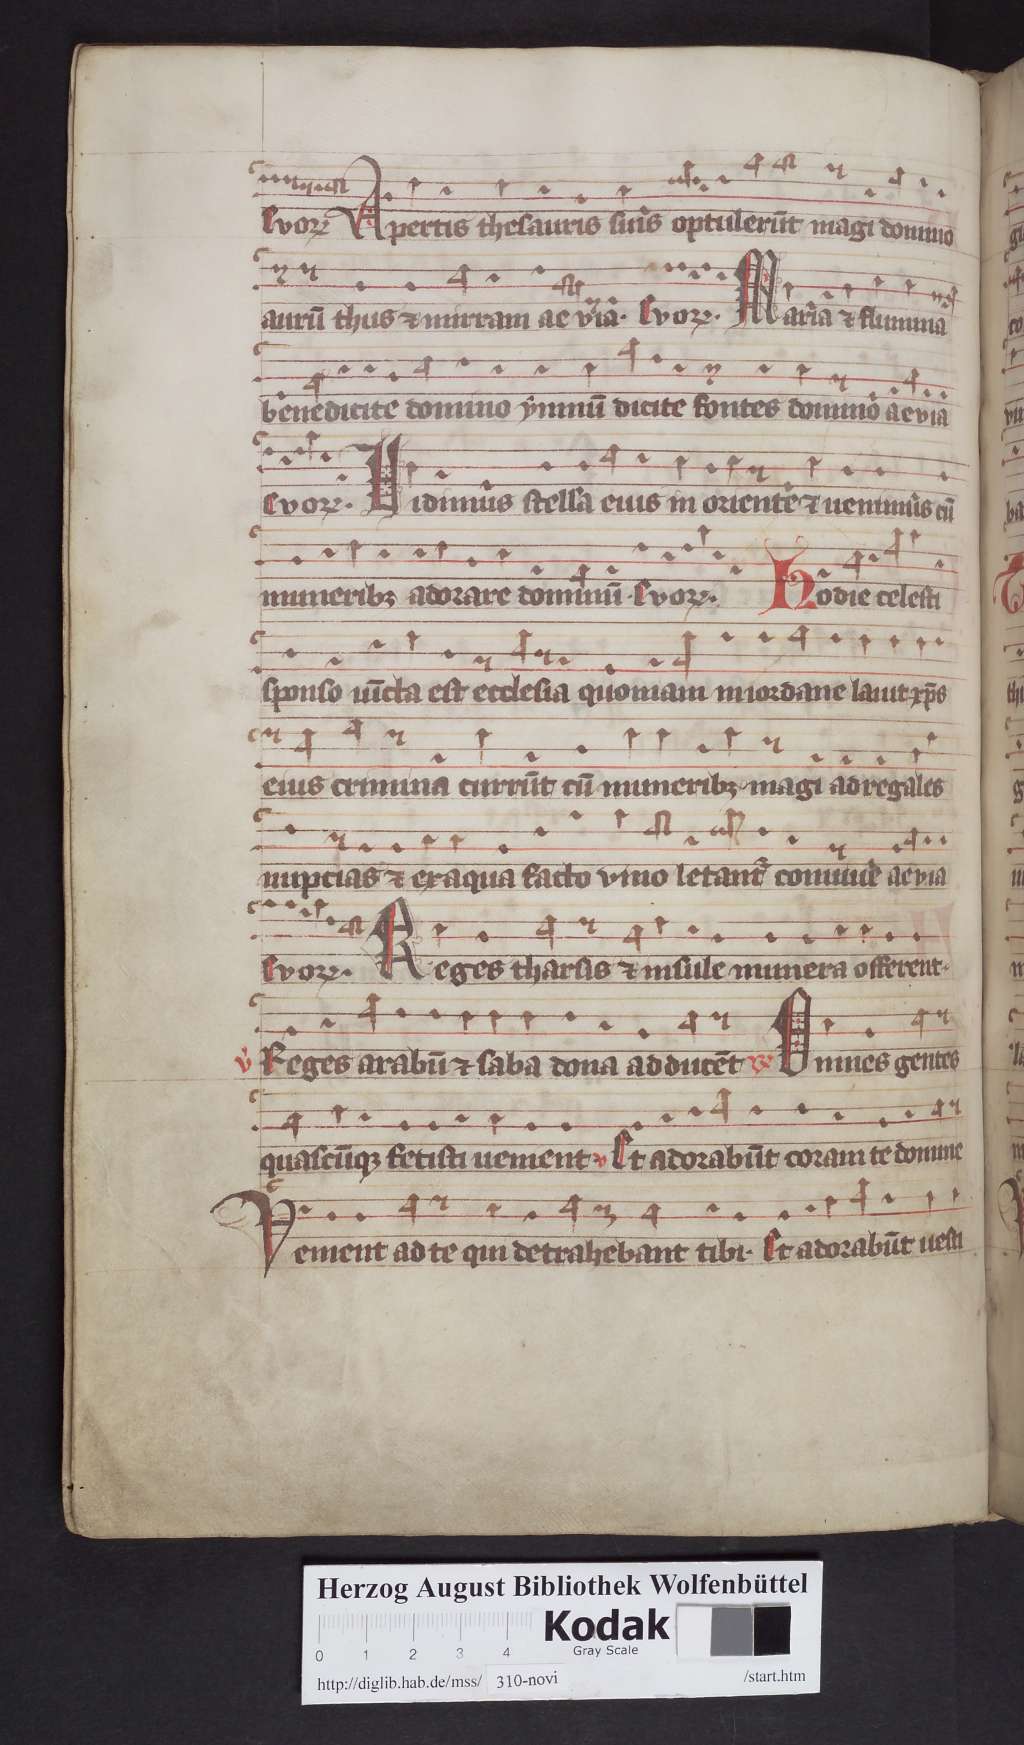 Evoꝝ Apertis thesauris suis optulerūt magi domino
aurū thus ⁊ mirram aevia. Evoꝝ. Maria ⁊ flumina
benedicite domino ymnū dicite fontes domino aevia
Evoꝝ. Vidimus stella eius in oriente ⁊ uenimus cū
muneribꝫ adorare dominū. Evoꝝ. Hodie celesti
sponso iūcta est ecclesia quoniam iniordane lauit xp̄s
eius crimina currūt cū muneribꝫ magi ad regales
nupcias ⁊ exaqua facto vino letant᷑ conuiue aevia
Evoꝝ. Reges tharsis ⁊ insule munera offerent.
v̄ Reges arabū ⁊ saba dona adducēt Omnes gentes
quascūqꝫ fetisti uenient v Et adorabūt coram te domine
Venient ad te qui detrahebant tibi. Et adorabūt uesti
Herzog August Bibliothek Wolfenbüttel
Kodak
Gray Scale
0 1 2 3 4
http://diglib.hab.de/mss/ 310-novi /start.htm